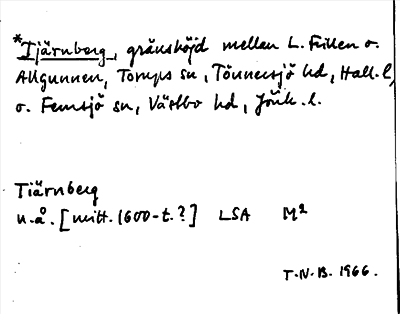 *Tjärnberg, gränshöjd mellan L. Frillen o.
Allgunnen, Torups sn, Tönnersjö hd, Hall. l,
o. Femsjö sn, Västbo hd, Jönk. l.
Tiärnberg
n.å. [mitt. 1600-t.?] LSA M²
T.N.B. 1966.